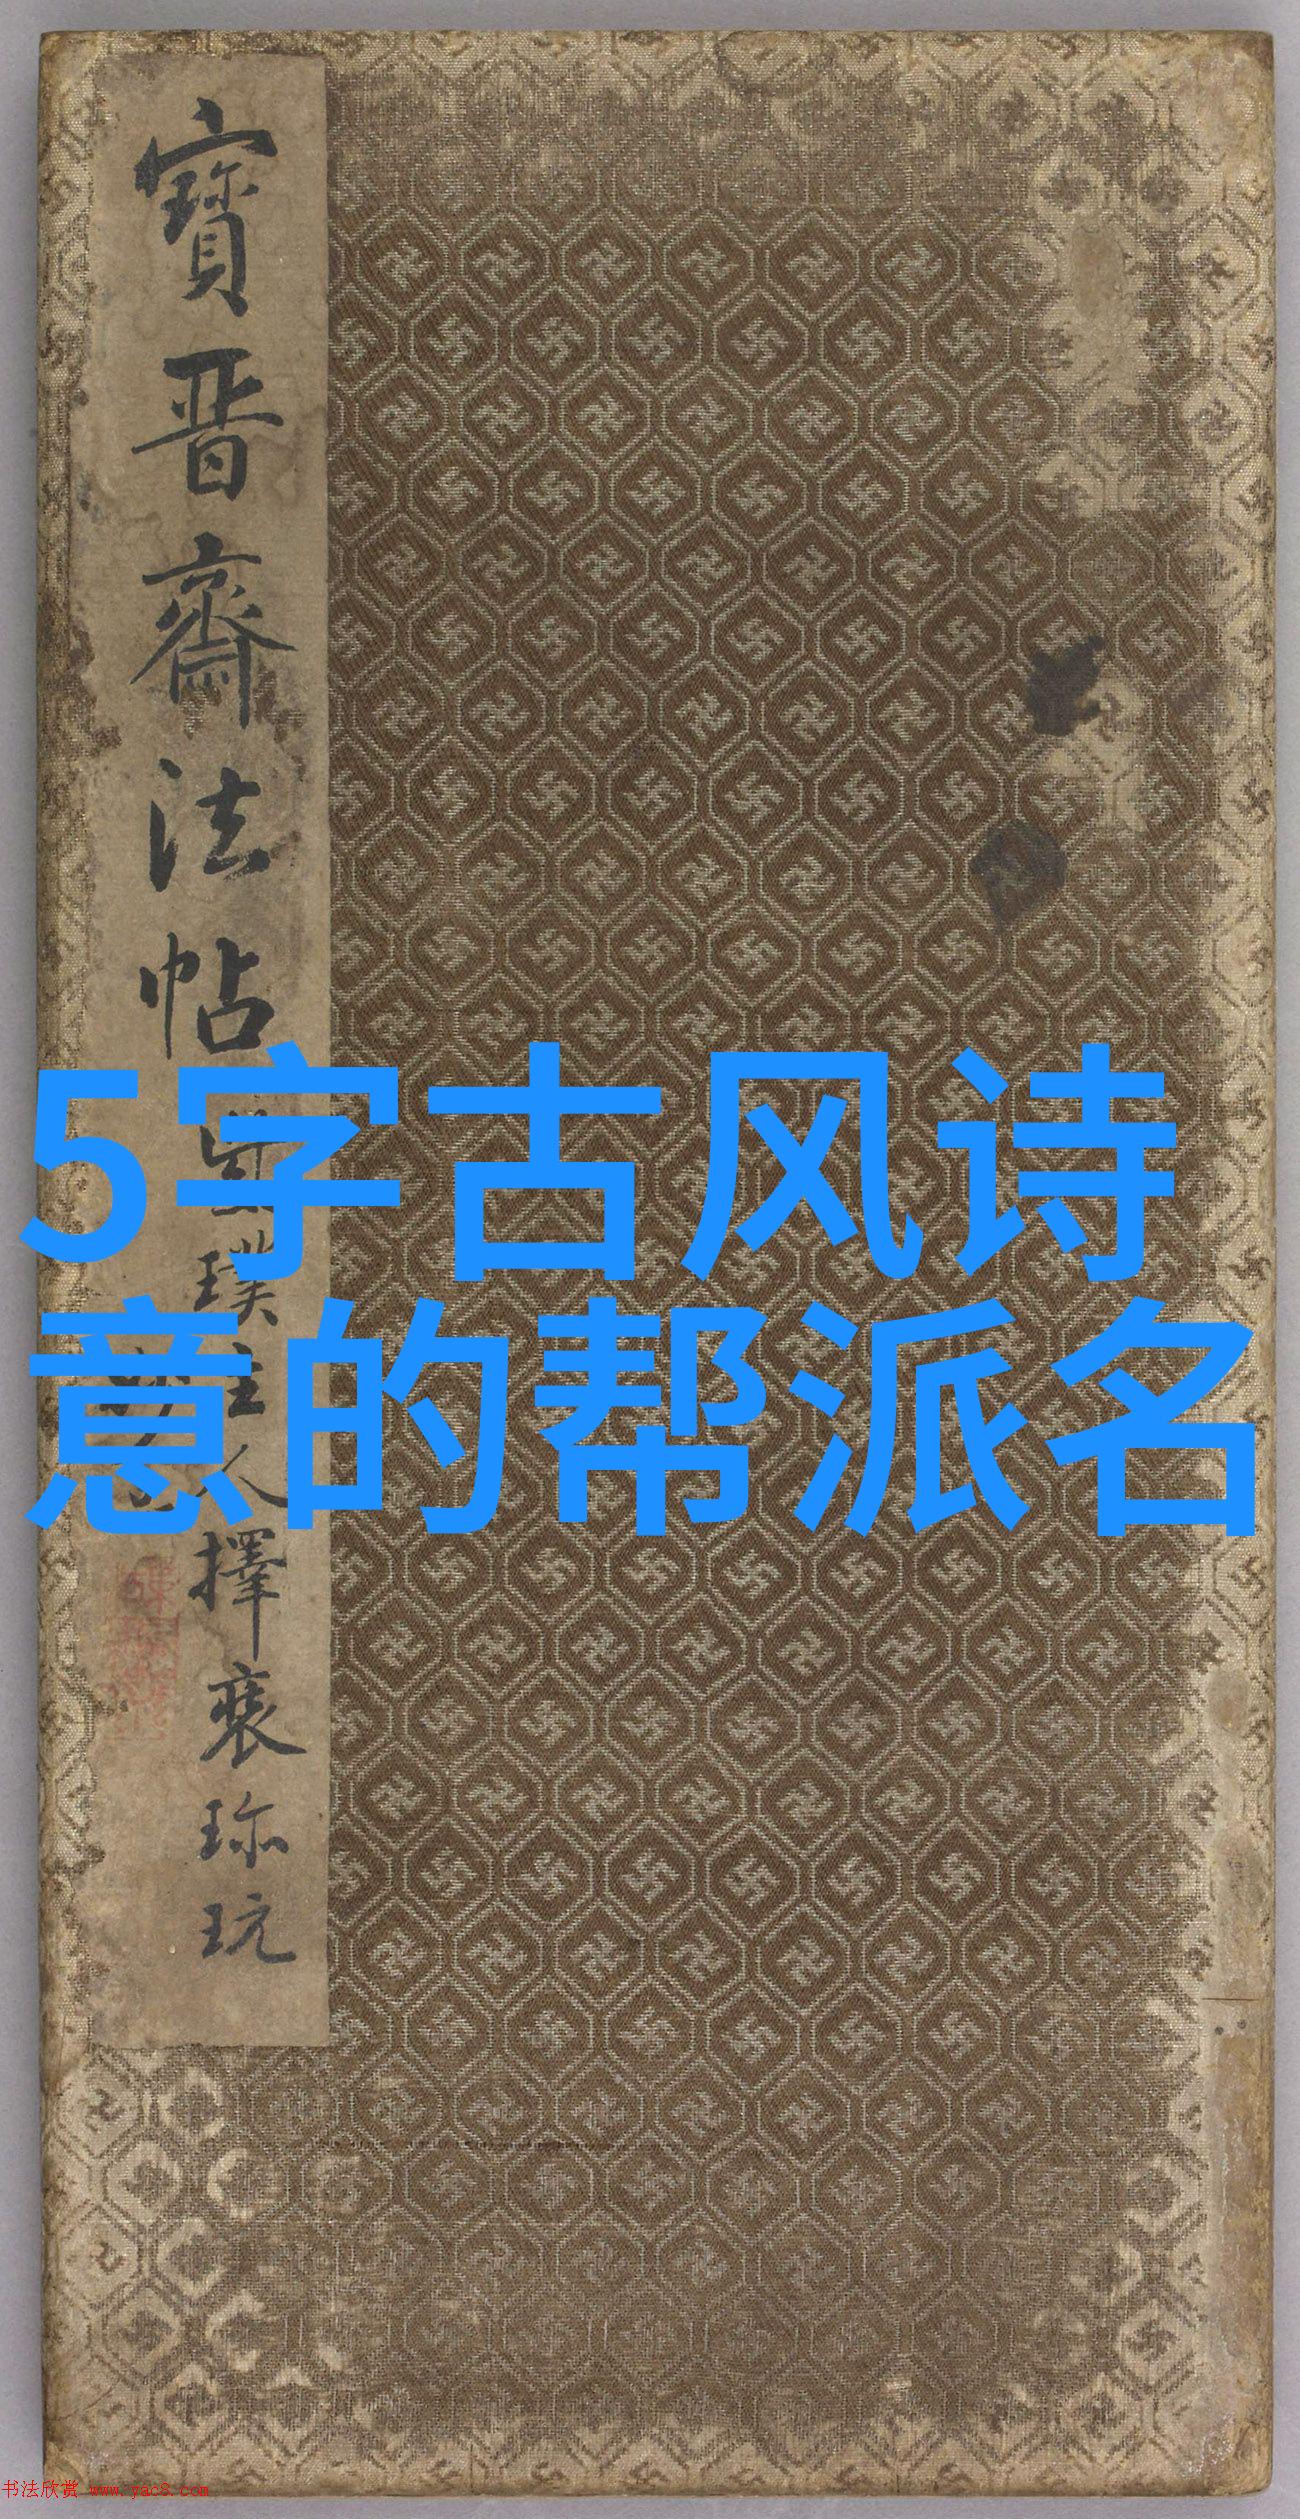 寶晋齋法帖
璞主人擇裘珎玩
5字古风诗
意的帮派名
书法欣赏 www.yac8.com